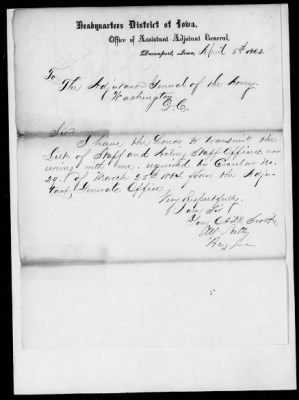 Headquarters District of Iowa,
Office of Assistant Adjutant General,
Davenport, Iowa, April 5th 1864
To
The Adjutant General of the Army
Washington
D.C.
Sir
I have the honor to transmit the
List of Staff and Acting Staff Officers now
serving with me, required by Circular No.
29. of March 25th 1864 from the Adju-
tant Generals Office
Very Respectfully
I am Sir
Your Obdt Servt
Brig Gen